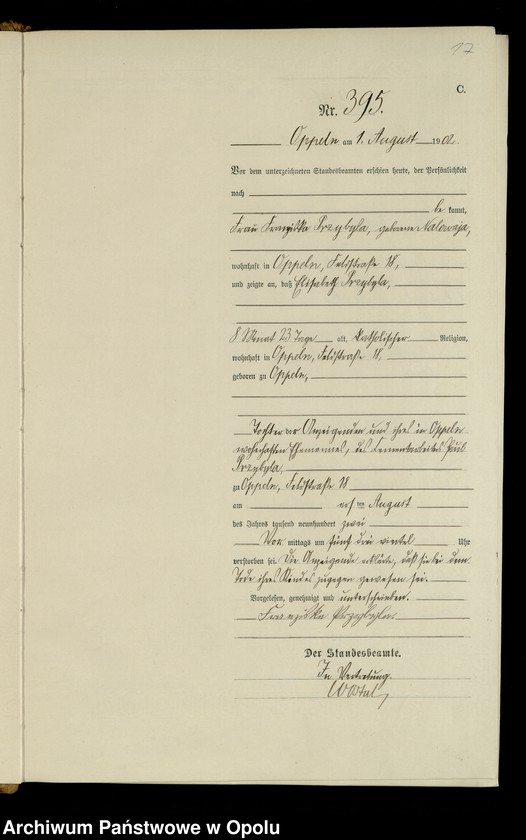 17
C.
Nr. 395.
Oppeln am 1. August 1902.
Vor dem unterzeichneten Standesbeamten erschien heute, der Persönlichkeit
nach
be kannt,
Frau Franziska Przybyla, geborene Nalewaja,
wohnhaft in Oppeln, Feldstraße 18,
und zeigte an, daß Elisabeth Przybyla,
8 Monat 23 Tage alt, katholischer Religion,
wohnhaft in Oppeln, Feldstraße 18,
geboren zu Oppeln,
Tochter der Anzeigenden und ihres in Oppeln
wohnhaften Ehemannes, des Cementarbeiters Paul
Przybyla,
zu Oppeln, Feldstraße 18
am ersten August
des Jahres tausend neunhundert zwei
Vor mittags um fünf drei viertel Uhr
verstorben sei. Die Anzeigende erklärte, daß sie bei dem
Tode ihres Kindes zugegen gewesen sei.
Vorgelesen, genehmigt und unterschrieben.
Franziska Przybyla.
Der Standesbeamte.
In Vertretung.
Archiwum Państwowe w Opolu